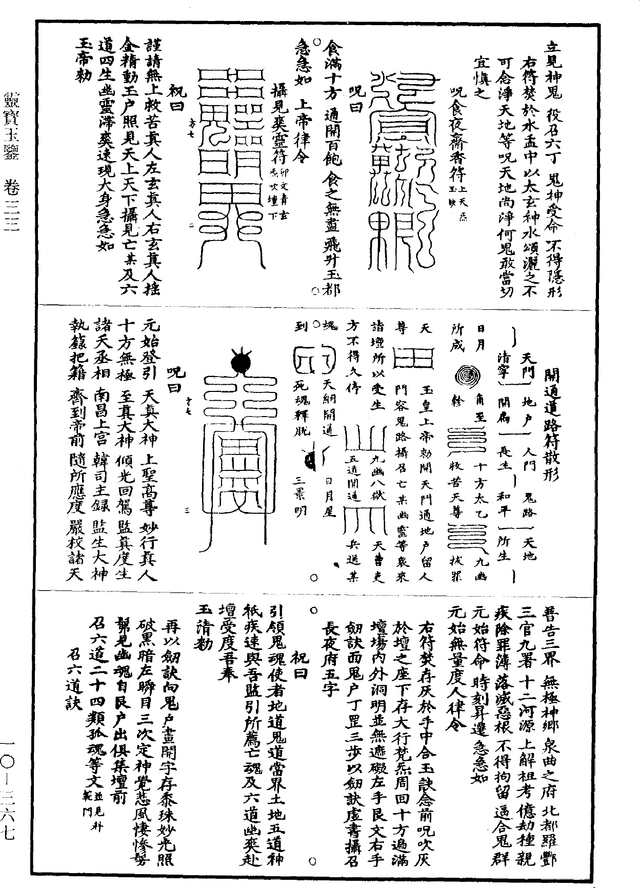 靈寶玉鑒 卷三三
一〇—三六七
立見神鬼 役召六丁 鬼神受命 不得隱形
右符焚於水盂中以太玄神水頌灑之不
可念淨天地等呪天地尚淨何鬼敢當切
宜慎之
呪食夜齋香符
呪曰
食滿十方 通開百飽 食之無盡 飛升玉都
急急如 上帝律令
攝見爽靈符
祝曰
謹請無上救苦真人左玄真人右玄真人搖
金精動玉户照見天上天下攝見亡某及六
道四生幽靈滯爽速現大身急急如
玉帝勑
開通道路符散形
天門 地户 人門 鬼路 天地
清寧 開扃 長生 和平 所生
日月 角至 十方太乙 九幽
所咸 救苦天尊 拔罪
天 玉皇上帝勑開天門通地户留人
尊 門容鬼路攝召亡某幽靈等衆來
諸壇所以受生 九幽八獄 天曹吏
方不得久停 五道開通 兵送某
魂 天網開通 日月星
到 死魂釋脫 三景明
呪曰
元始登引 天真大神 上聖高尊 妙行真人
十方無極 至真大神 傾光回駕 監真度生
諸天丞相 南昌上宫 韓司主録 監生大神
執籙把籍 齊到帝前 隨所應度 嚴校諸天
普告三界 無極神鄉 泉曲之府 北都羅酆
三官九署 十二河源 上解祖考 億劫種親
疾除罪簿 落滅惡根 不得拘留 逼合鬼群
元始符命 時刻昇遷 急急如
元始無量度人律令
右符焚存灰於手中合玉訣念前呪吹灰
於壇之座下存大行梵炁周回十方遍滿
壇場内外洞明並無遮礙左手艮文右手
劍訣面鬼户丁罡三步以劍訣虛書攝召
長夜府五字
祝曰
引領鬼魂使者地道鬼道當界土地五道神
祇疾速與吾監引所薦亡魂及六道幽爽赴
壇受度吾奉
玉清勑
再以劍訣向鬼户畫開字存黍珠妙光照
破黑暗左瞬目三次定神覺悲風悽慘髣
髴見幽魂自艮户出俱集壇前
召六道二十四類孤魂等文
召六道訣